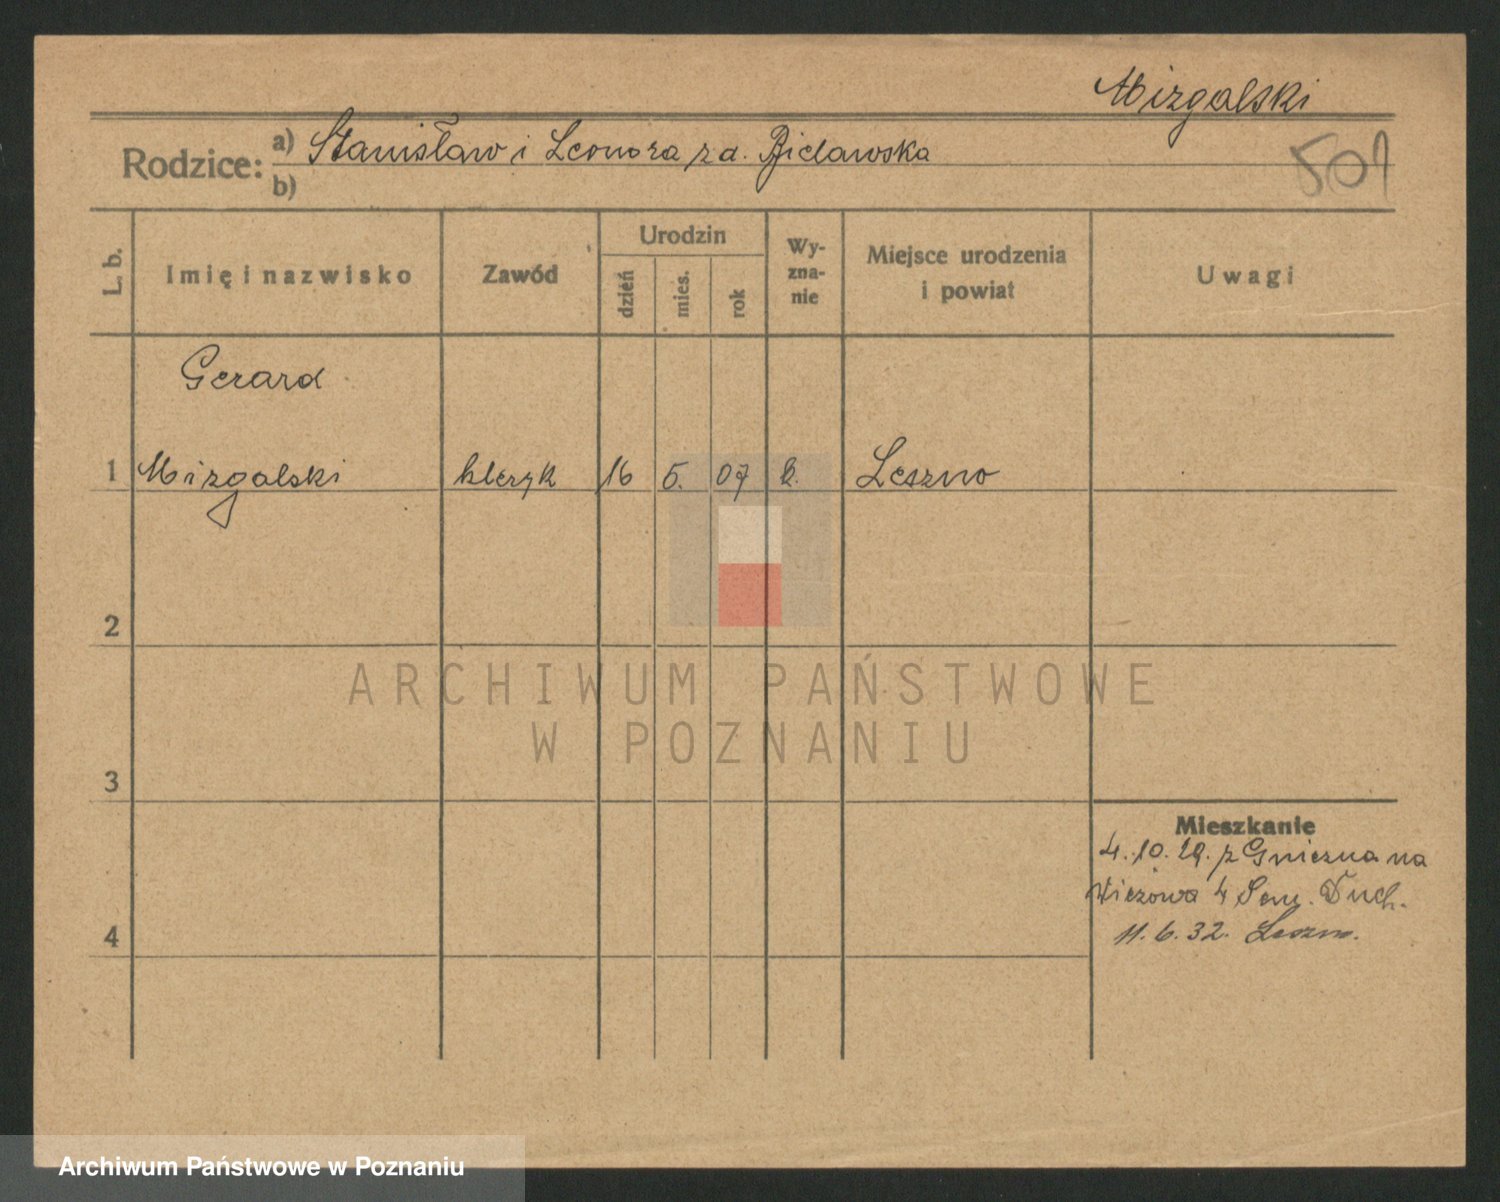 Mizgalski
Rodzice: a) Stanisław i Leonora z d. Bielawska
b)
501
L. b.
Imię i nazwisko
Zawód
Urodzin
dzień
mies.
rok
Wy-
zna-
nie
Miejsce urodzenia
i powiat
Uwagi
Gerard
1 Mizgalski kleryk 16 5. 07 k. Leszno
2
3
4
Mieszkanie
4.10.29. z Gniezna na
Wieżowa 4 Sem. Duch.
11.6.32. Leszno.
ARCHIWUM PAŃSTWOWE
W POZNANIU
Archiwum Państwowe w Poznaniu